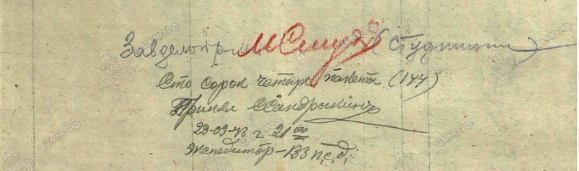 Завделопр. (Студники)
Сто сорок четыре пакета (144)
Принял Сандрыкин
23-09-43 г. 21 00
Экспедитор - 133 п.с.д.